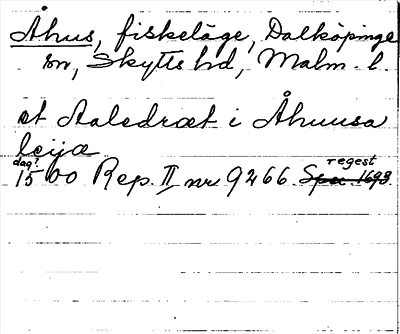 Åhus, fiskeläge, Dalköpinge
sn, Skytts hd, Malm. l.
et Aalsdræt i Åhuusa
leijæ
dag? regest
1500 Rep. II nr 9266 Spec 1693